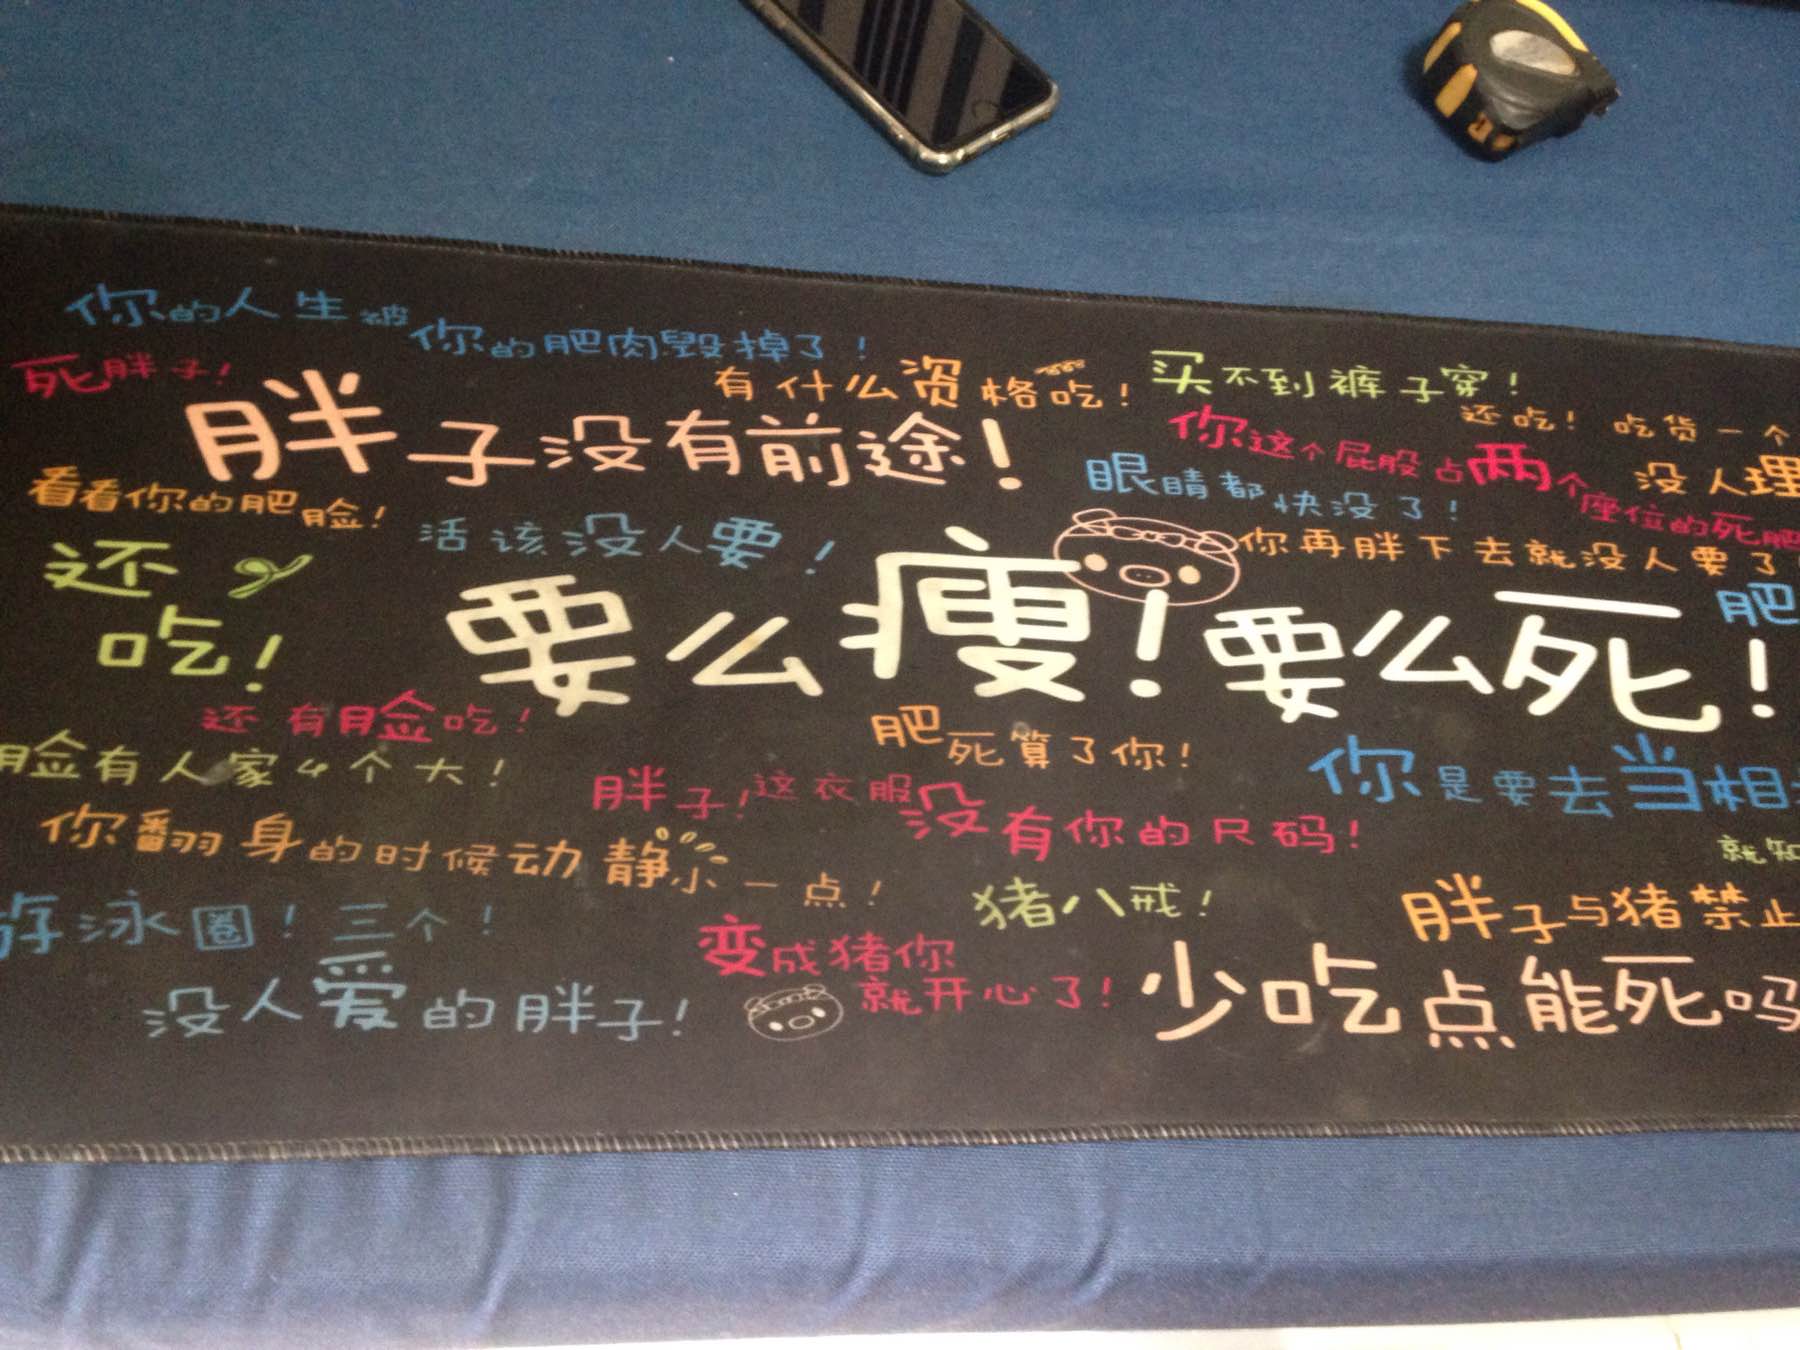 你的人生被
你的肥肉毁掉了！
死胖子！
有什么资格吃！
买不到裤子穿！
胖子没有前途！
还吃！吃货一个
没人理
你这个屁股占两个
座位的死肥
看看你的肥脸！
眼睛都快没了！
活该没人要！
你再胖下去就没人要了
还
吃！
要么瘦！要么死！
肥
还有脸吃！
肥死算了你！
脸有人家4个大！
你是要去当相
胖子！这衣服没有你的尺码！
你翻身的时候动静小一点！
就知
猪八戒！
胖子与猪禁止
游泳圈！三个！
变成猪你
就开心了！
少吃点能死吗
没人爱的胖子！